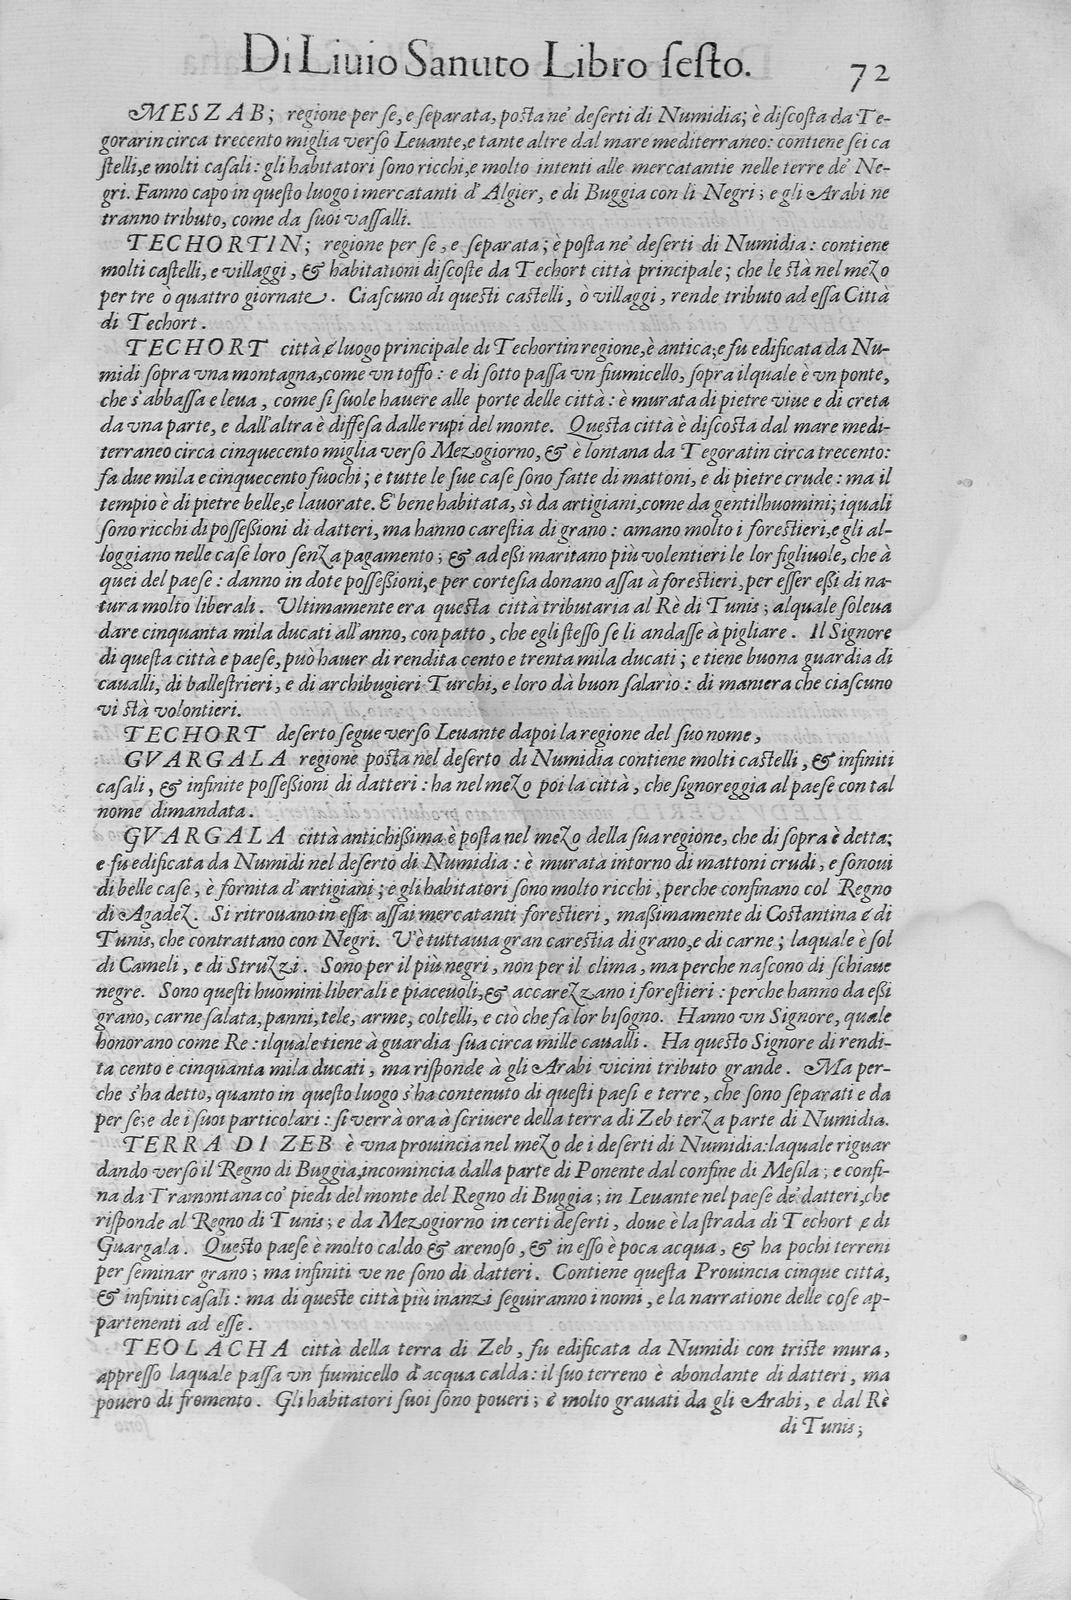 Di Liuio Sanuto Libro sesto. 72
MESZAB; regione per se, e separata, posta ne' deserti di Numidia; è discosta da Te-
gorarin circa trecento miglia verso Leuante, e tante altre dal mare mediterraneo: contiene sei ca
stelli, e molti casali: gli habitatori sono ricchi, e molto intenti alle mercatantie nelle terre de' Ne-
gri. Fanno capo in questo luogo i mercatanti d' Algier, e di Buggia con li Negri; e gli Arabi ne
tranno tributo, come da suoi vassalli.
TECHORTIN; regione per se, e separata; è posta ne' deserti di Numidia: contiene
molti castelli, e villaggi, & habitationi discoste da Techort città principale; che le stà nel mezo
per tre ò quattro giornate. Ciascuno di questi castelli, ò villaggi, rende tributo ad essa Città
di Techort.
TECHORT città e luogo principale di Techortin regione, è antica; e fu edificata da Nu-
midi sopra vna montagna, come vn toffo: e di sotto passa vn fiumicello, sopra ilquale è vn ponte,
che s'abbassa e leua, come si suole hauere alle porte delle città: è murata di pietre viue e di creta
da vna parte, e dall'altra è diffesa dalle rupi del monte. Questa città è discosta dal mare medi-
terraneo circa cinquecento miglia verso Mezogiorno, & è lontana da Tegoratin circa trecento:
fa due mila e cinquecento fuochi; e tutte le sue case sono fatte di mattoni, e di pietre crude: ma il
tempio è di pietre belle, e lauorate. E bene habitata, sì da artigiani, come da gentilhuomini; iquali
sono ricchi di possessioni di datteri, ma hanno carestia di grano: amano molto i forestieri, e gli al-
loggiano nelle case loro senza pagamento; & ad essi maritano più volentieri le lor figliuole, che à
quei del paese: danno in dote possessioni, e per cortesia donano assai à forestieri, per esser essi di na-
tura molto liberali. Ultimamente era questa città tributaria al Rè di Tunis; alquale soleua
dare cinquanta mila ducati all'anno, con patto, che egli stesso se li andasse à pigliare. Il Signore
di questa città e paese, può hauer di rendita cento e trenta mila ducati; e tiene buona guardia di
caualli, di ballestrieri, e di archibugieri Turchi, e loro dà buon salario: di maniera che ciascuno
vi stà volontieri.
TECHORT deserto segue verso Leuante dapoi la regione del suo nome,
GVARGALA regione posta nel deserto di Numidia contiene molti castelli, & infiniti
casali, & infinite possessioni di datteri: ha nel mezo poi la città, che signoreggia al paese con tal
nome dimandata.
GVARGALA città antichissima è posta nel mezo della sua regione, che di sopra è detta;
e fu edificata da Numidi nel deserto di Numidia: è murata intorno di mattoni crudi, e sonoui
di belle case, è fornita d'artigiani; e gli habitatori sono molto ricchi, perche confinano col Regno
di Agadez. Si ritrouano in essa assai mercatanti forestieri, massimamente di Costantina e di
Tunis, che contrattano con Negri. V'è tuttauia gran carestia di grano, e di carne; laquale è sol
di Cameli, e di Struzzi. Sono per il più negri, non per il clima, ma perche nascono di schiaue
negre. Sono questi huomini liberali e piaceuoli, & accarezzano i forestieri: perche hanno da essi
grano, carne salata, panni, tele, arme, coltelli, e ciò che fa lor bisogno. Hanno vn Signore, quale
honorano come Re: ilquale tiene à guardia sua circa mille caualli. Ha questo Signore di rendi-
ta cento e cinquanta mila ducati, ma risponde à gli Arabi vicini tributo grande. Ma per-
che s'ha detto, quanto in questo luogo s'ha contenuto di questi paesi e terre, che sono separati e da
per se; e de i suoi particolari: si verrà ora à scriuere della terra di Zeb terza parte di Numidia.
TERRA DI ZEB è vna prouincia nel mezo de i deserti di Numidia: laquale riguar
dando verso il Regno di Buggia, incomincia dalla parte di Ponente dal confine di Mesila; e confi-
na da Tramontana co' piedi del monte del Regno di Buggia; in Leuante nel paese de' datteri, che
risponde al Regno di Tunis; e da Mezogiorno in certi deserti, doue è la strada di Techort e di
Guargala. Questo paese è molto caldo & arenoso, & in esso è poca acqua, & ha pochi terreni
per seminar grano; ma infiniti ve ne sono di datteri. Contiene questa Prouincia cinque città,
& infiniti casali: ma di queste città più inanzi seguiranno i nomi, e la narratione delle cose ap-
partenenti ad esse.
TEOLACHA città della terra di Zeb, fu edificata da Numidi con triste mura,
appresso laquale passa vn fiumicello d'acqua calda: il suo terreno è abondante di datteri, ma
pouero di fromento. Gli habitatori suoi sono poueri; e molto grauati da gli Arabi, e dal Rè
di Tunis;